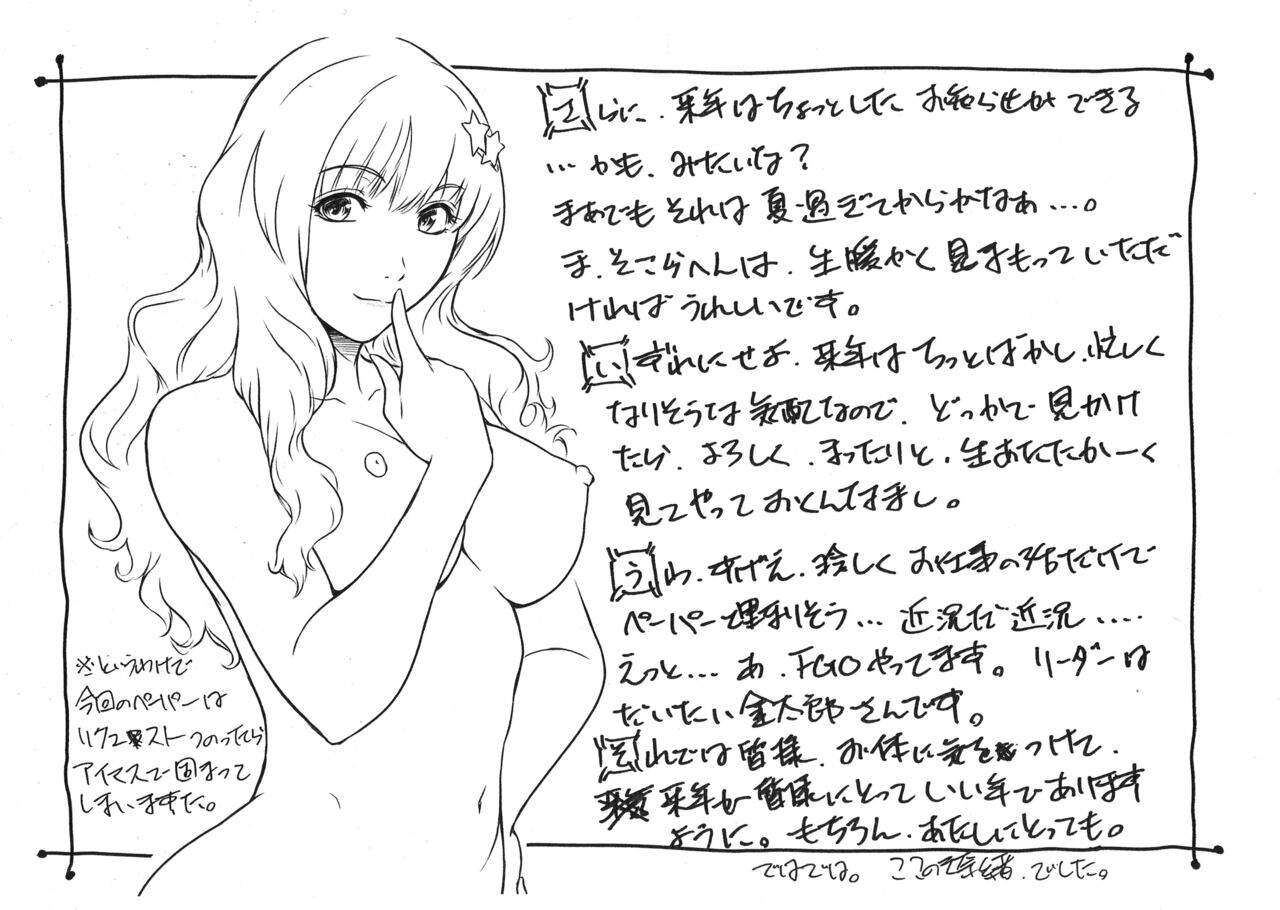 さらに、来年はちょっとした お知らせが できる
…かも、みたいな?
まあでも それは 夏過ぎてからかなぁ…。
ま、そこらへんは、生暖かく 見まもって いただだ
ければ うれしいです。
いずれにせよ、来年は ちっとばかし、忙しく
なりそうな 気配なので、どっかで 見かけ
たら、よろしく、まったりと、生あたたかーく
見てやって おくんなまし。
うわ、すげえ、珍しく お仕事の 話だけで
ペーパー埋まりそう… 近況だ 近況……
えっと… あ、FGO やってます。リーダーは
だいたい 金太郎さんです。
それでは 皆様、お体に 気を つけて、
来年が 皆様にとって いい年で あります
ように。もちろん、あたしにとっても。
ではでは。 ここのき奈緒、でした。
※というわけで
今回のペーパーは
リクエストつのったら
アイマスで 固まって
しまいました。